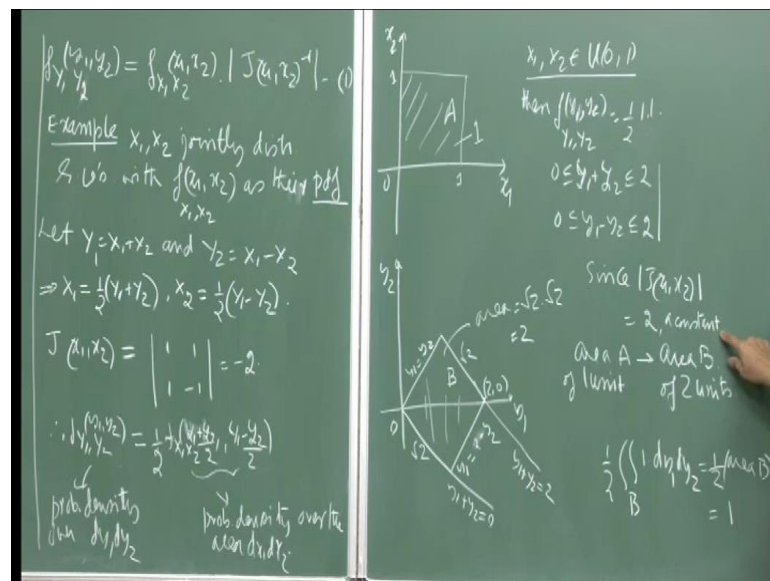 f_{Y_1, Y_2}(y_1, y_2) = f_{X_1, X_2}(x_1, x_2) . | J(x_1, x_2)^{-1} | - (1)
Example X_1, X_2 jointly distr
r.v's with f_{X_1, X_2}(x_1, x_2) as their pdf
Let Y_1 = X_1 + X_2 and Y_2 = X_1 - X_2
⇒ X_1 = 1/2 (Y_1 + Y_2), X_2 = 1/2 (Y_1 - Y_2).
J(x_1, x_2) = | 1 1 |
| 1 -1 | = -2.
∴ f_{Y_1, Y_2}(y_1, y_2) = 1/2 f_{X_1, X_2}((y_1 + y_2)/2, (y_1 - y_2)/2)
prob. density
over dy_1 dy_2
prob. density over the
area dx_1 dx_2
x_2
1
A
1
0
1
x_1
X_1, X_2 ∈ U(0, 1)
then f_{Y_1, Y_2}(y_1, y_2) = 1/2 1.1.
0 ≤ y_1 + y_2 ≤ 2
0 ≤ y_1 - y_2 ≤ 2
y_2
area = √2 · √2
= 2
y_1 = y_2
√2
B
(2, 0)
0
y_1
√2
y_1 + y_2 = 2
y_1 + y_2 = 0
Since |J(x_1, x_2)|
= 2, a constant
area A → area B
of 1 unit of 2 units
1/2 ∫∫_B 1 dy_1 dy_2 = 1/2 (area B)
= 1